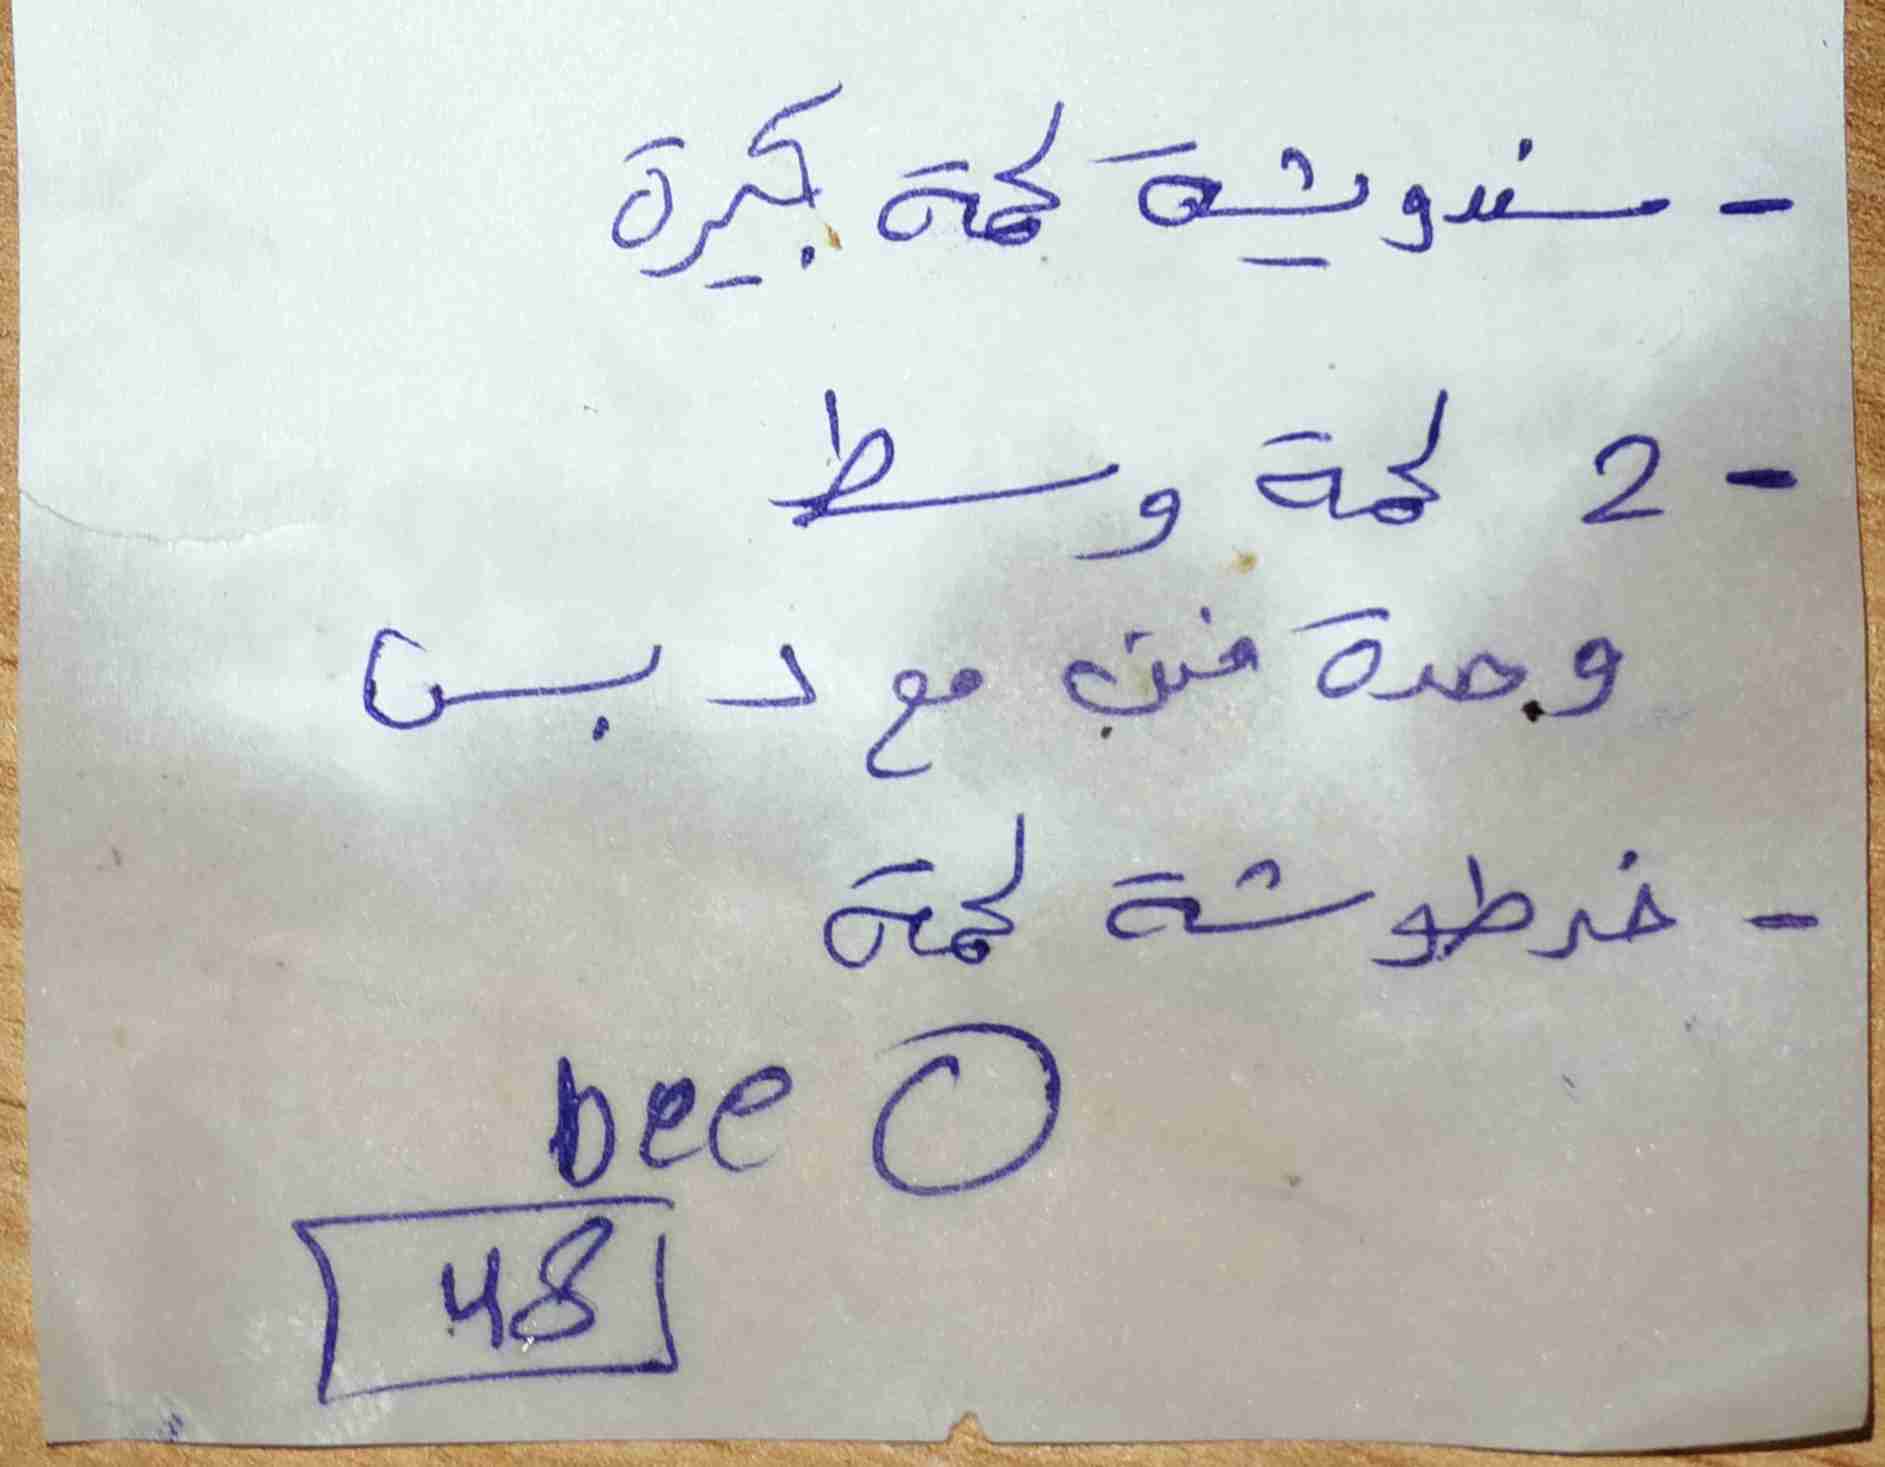 - سندويشة لحمة كبيرة
- 2 لحمة وسط
وحدة منن مع دبس
- خرطوشة لحمة
bee
48